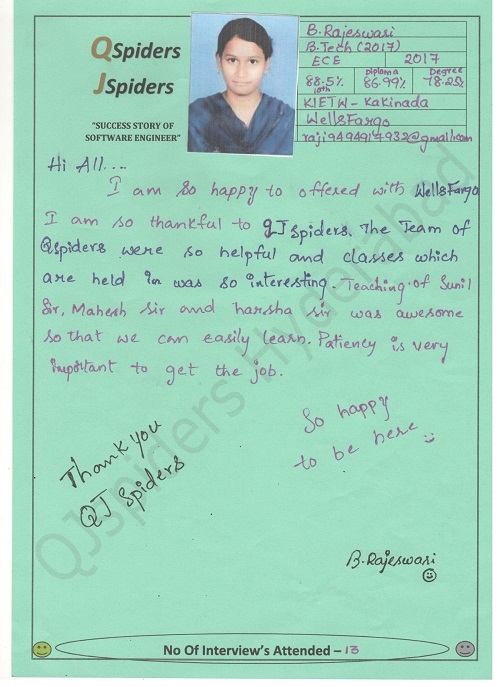 QSpiders
JSpiders
"SUCCESS STORY OF
SOFTWARE ENGINEER"
B. Rajeswari
B.Tech (2017)
ECE 2017
88.5% 10th Diploma 86.99% Degree 78.25%
KIETW - Kakinada
WellsFargo
raji9494914932@gmail.com
Hi All....
I am so happy to offered with WellsFargo
I am so thankful to QJspiders. The Team of
Qspiders were so helpful and classes which
are held in was so interesting. Teaching of Sunil
Sir, Mahesh sir and harsha sir was awesome
so that we can easily learn. Patiency is very
important to get the job.
So happy
to be here
Thank you
QJ Spiders
B. Rajeswari
No Of Interview's Attended – 13
QJSpiders Hyderabad